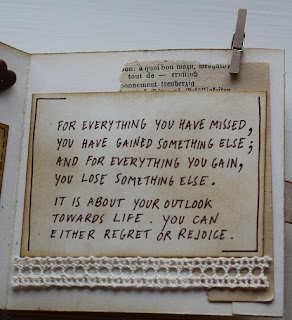 bon: à quoi bon wozu,
tout de — ernstlich
treuherzig
FOR EVERYTHING YOU HAVE MISSED,
YOU HAVE GAINED SOMETHING ELSE;
AND FOR EVERYTHING YOU GAIN,
YOU LOSE SOMETHING ELSE.
IT IS ABOUT YOUR OUTLOOK
TOWARDS LIFE. YOU CAN
EITHER REGRET OR REJOICE.